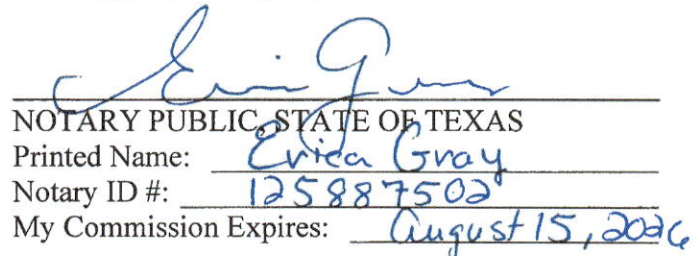 Erica Gray
NOTARY PUBLIC, STATE OF TEXAS
Printed Name: Erica Gray
Notary ID #: 125887502
My Commission Expires: August 15, 2026